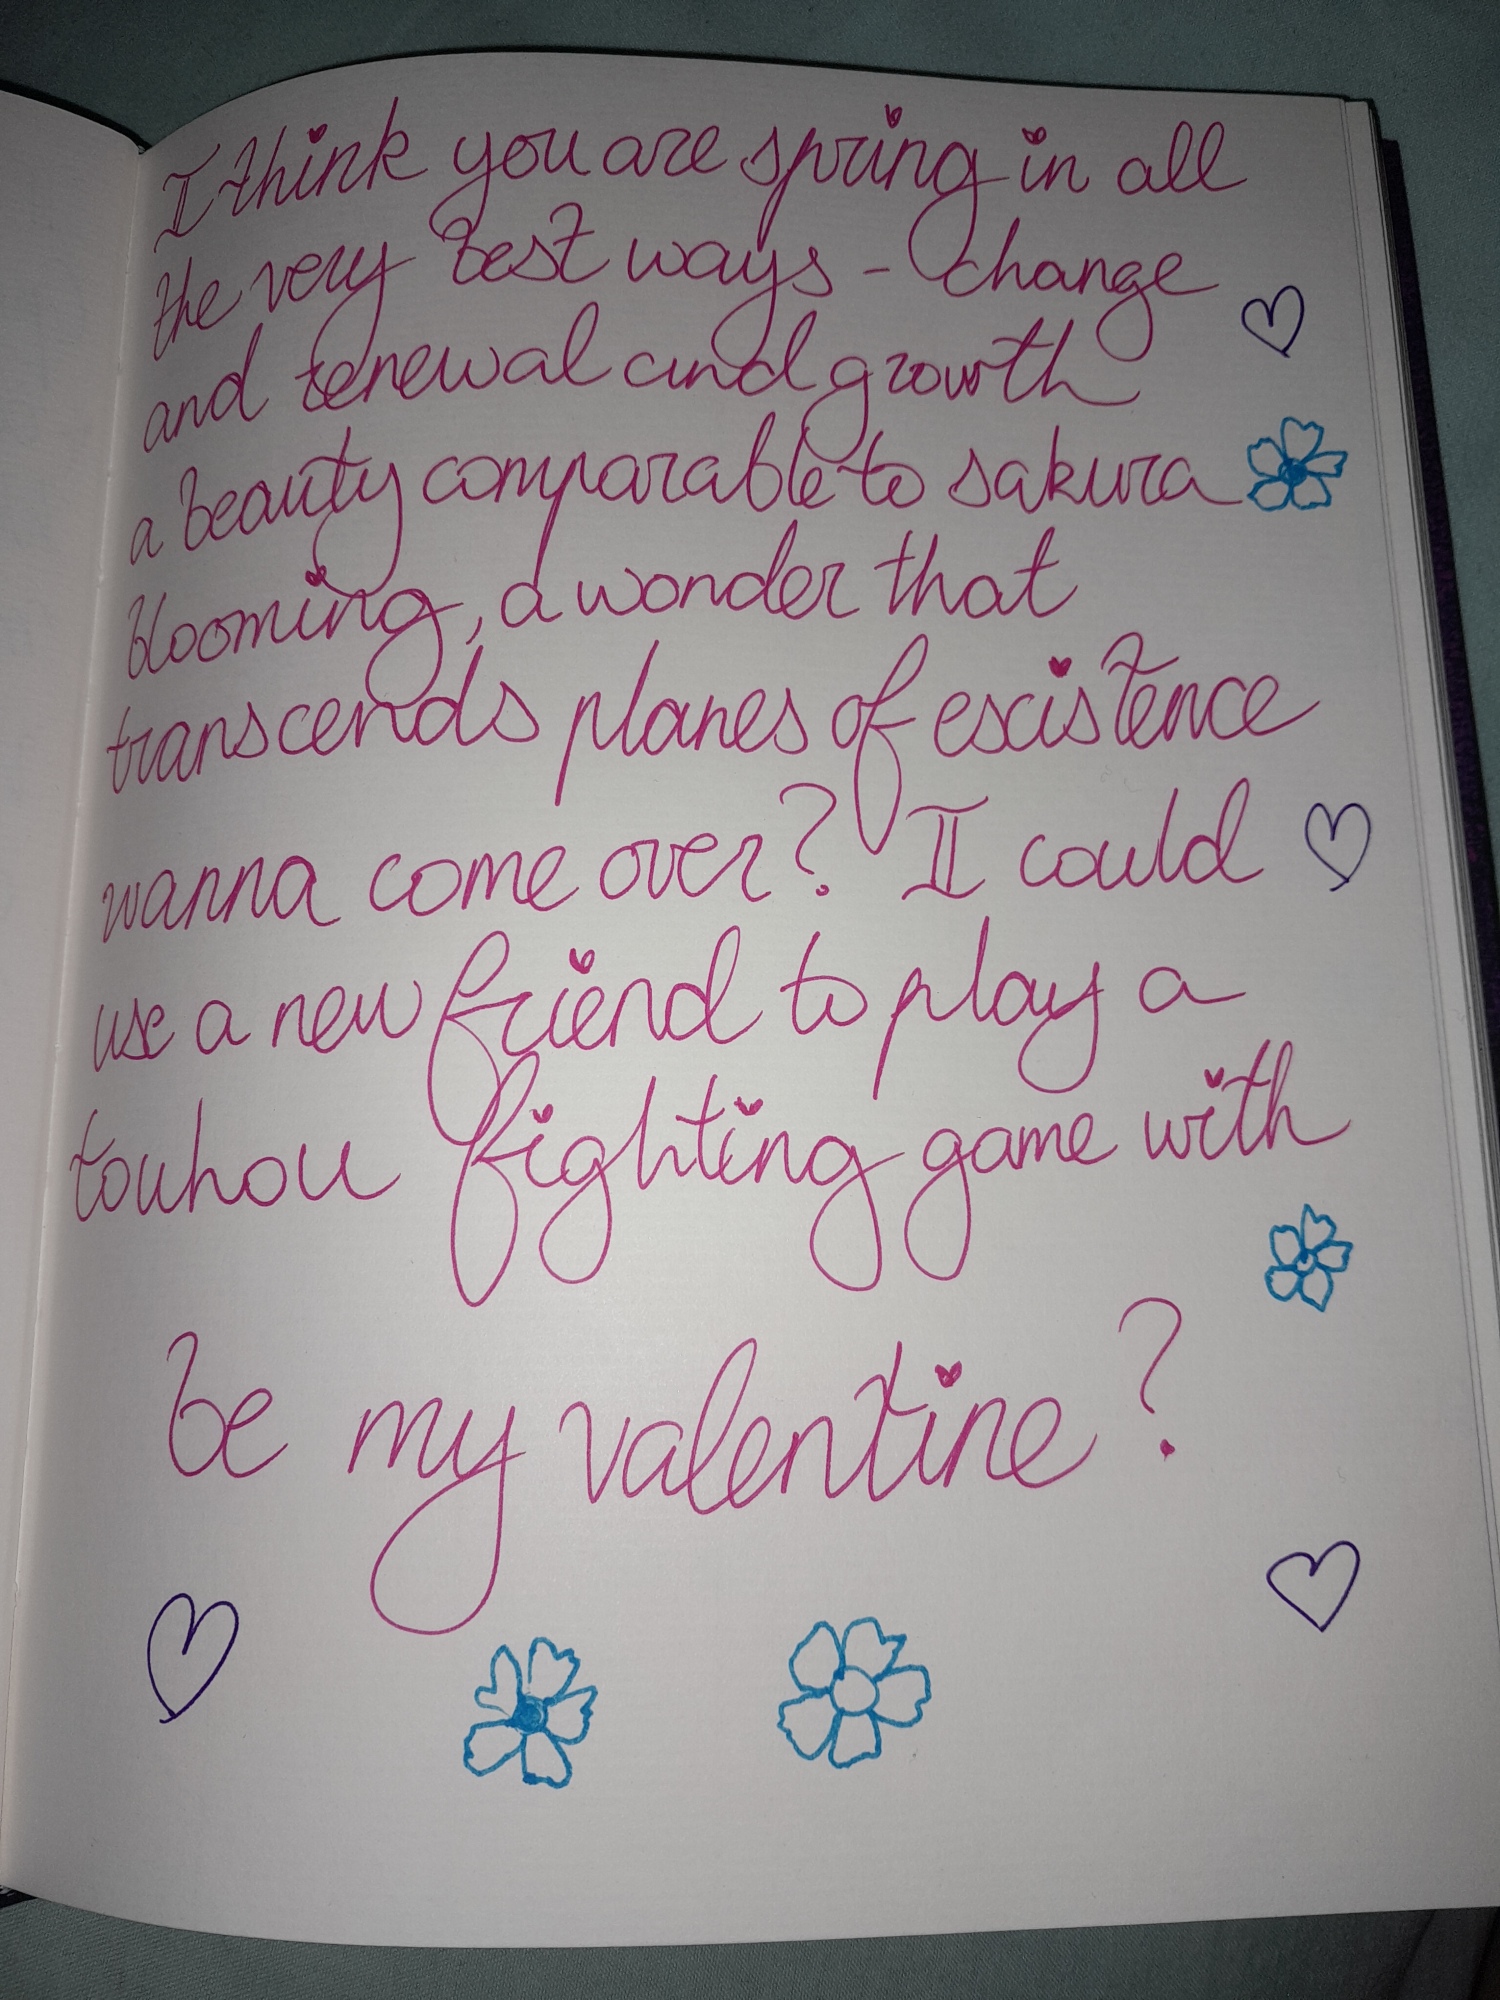 I think you are spring in all
the very best ways - change
and renewal and growth
a beauty comparable to sakura
blooming, a wonder that
transcends planes of existence
wanna come over? I could
use a new friend to play a
touhou fighting game with
be my valentine?